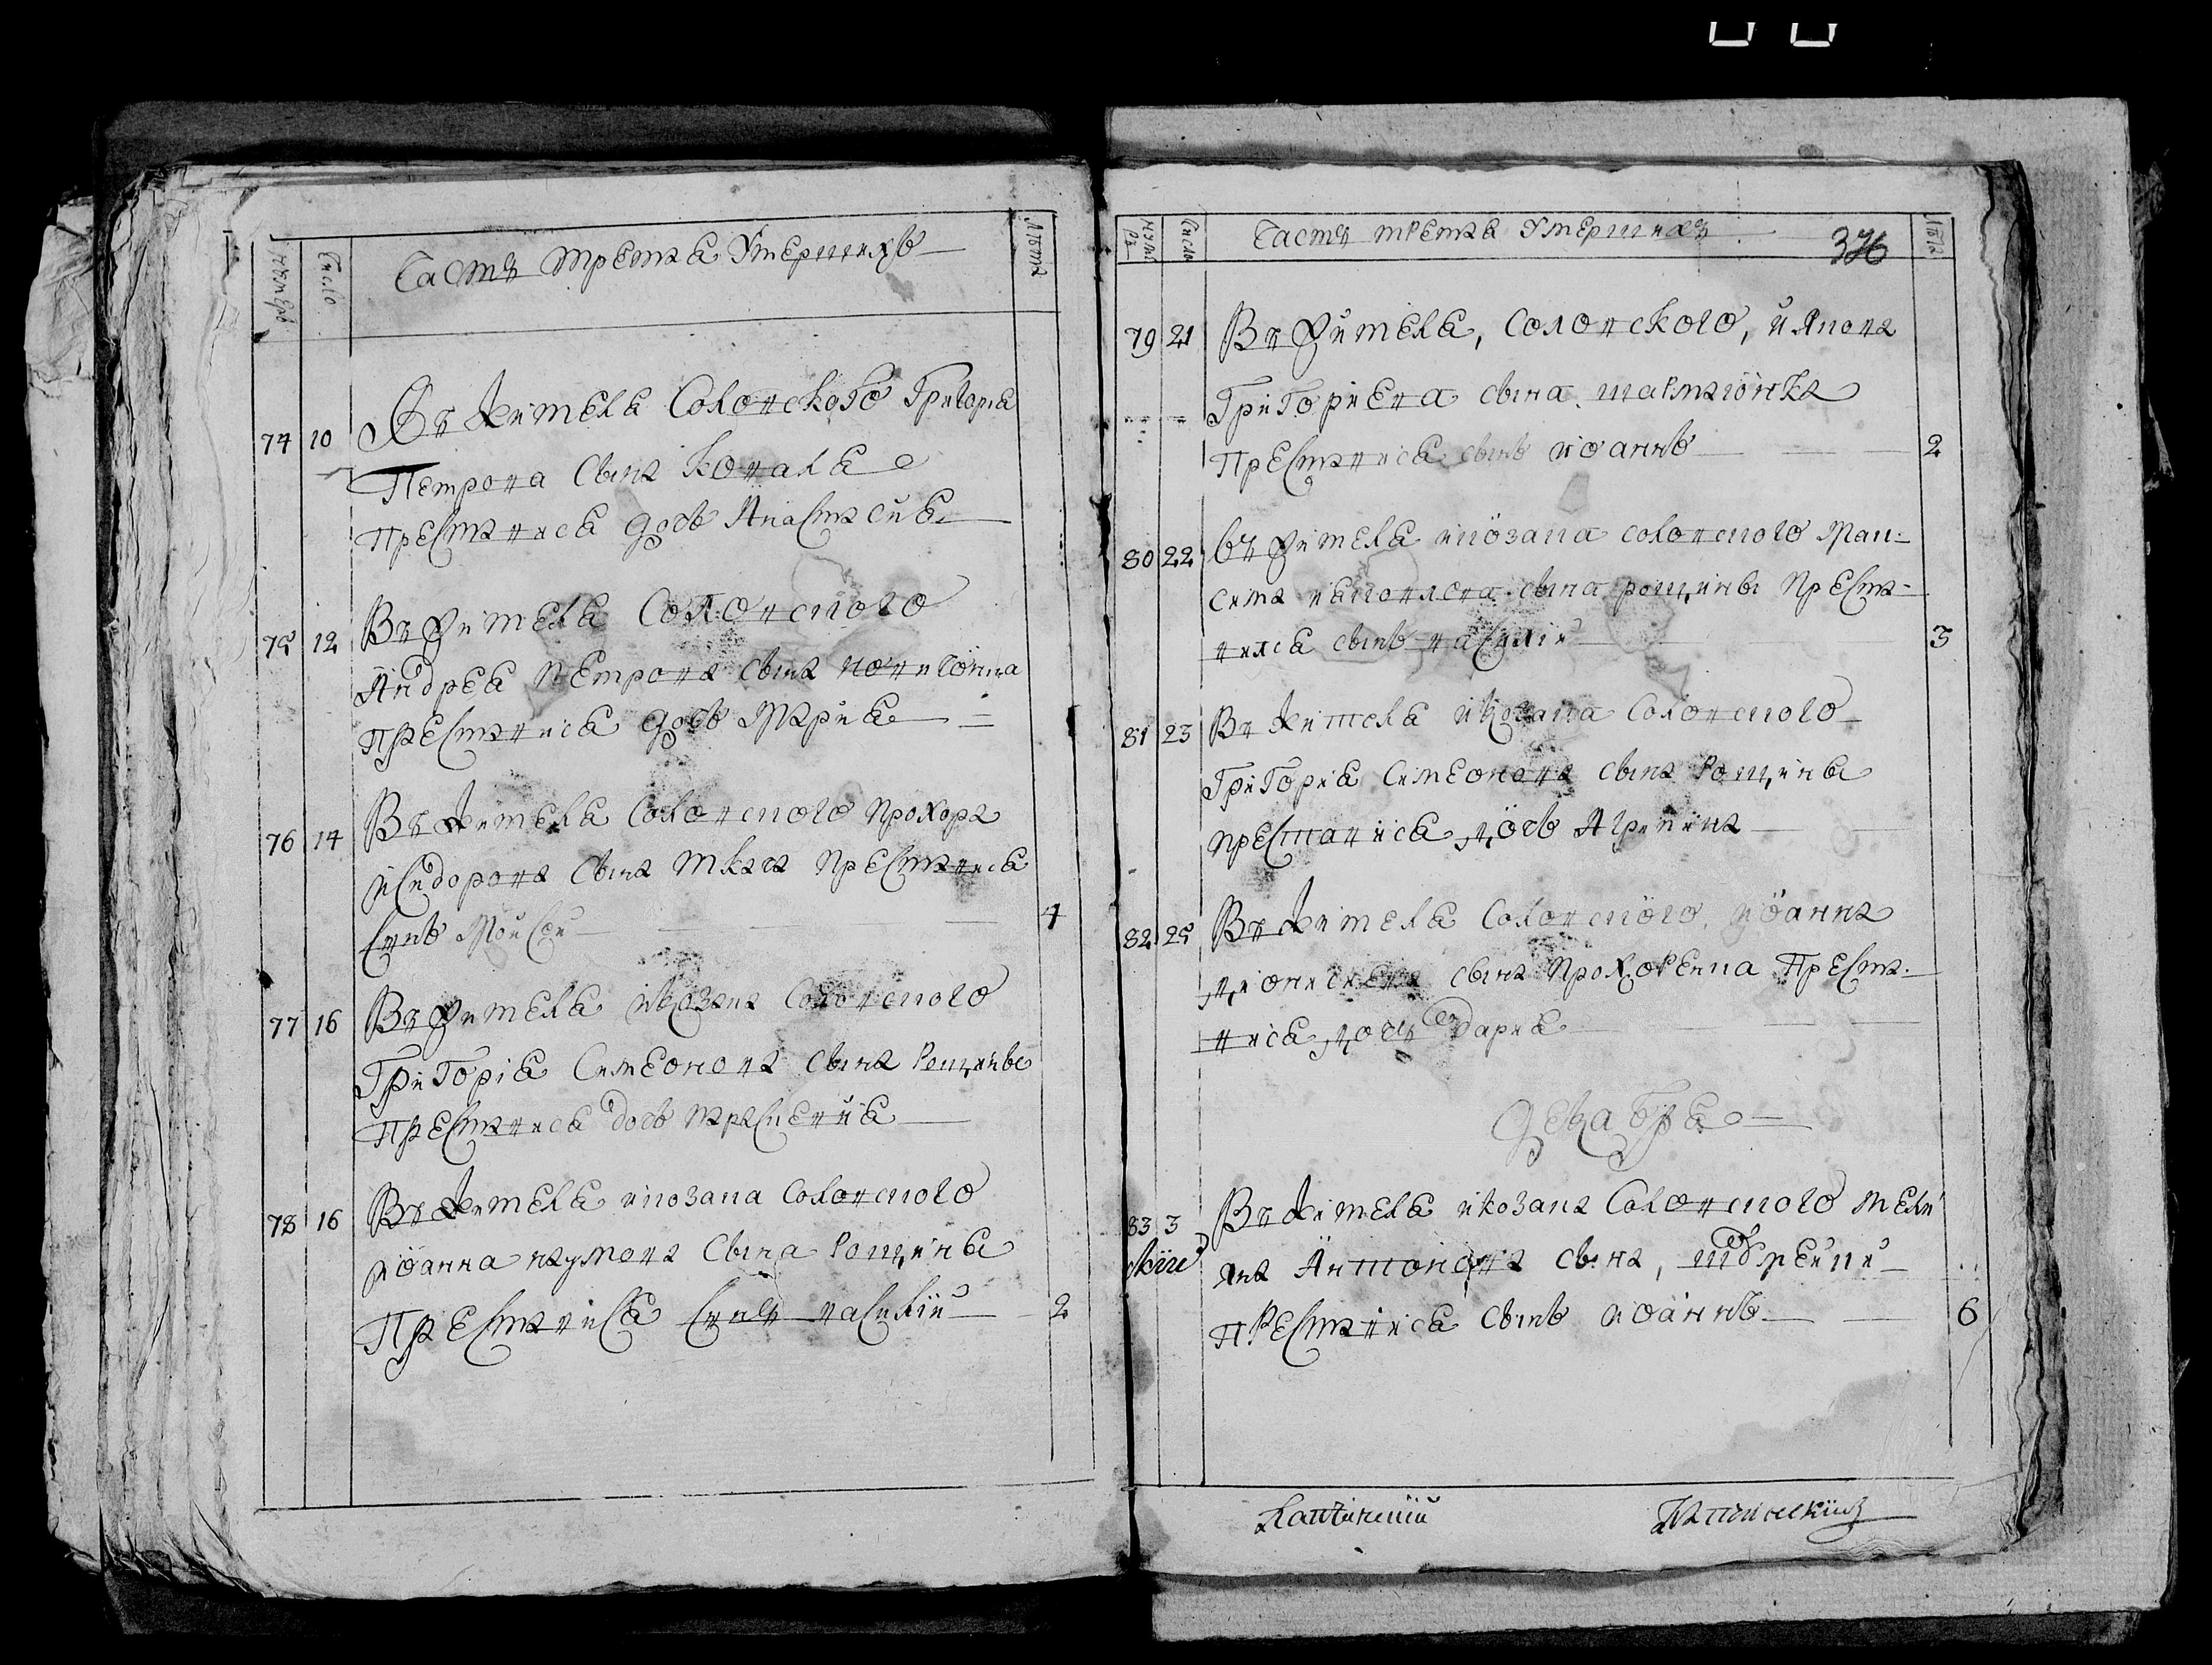 нумеръ
Число
Часть третя Умершихъ
лѣта
74 10 Въ жителя Соловского Григорія
Петрова сына Коваля
преставися дочь Анастасия
75 12 Въ жителя Соловского
Андрея Петрова сына
преставися дочь Мария
76 14 Въ жителя Соловского Прохора
Исидорова сына Ткача преставися
сынъ Моисей 4
77 16 Въ жителя и козака Соловского
Григорія Симеонова сына Рощины
преставися дочь Параскевия
78 16 Въ жителя и козака Соловского
Иоанна Наумова сына Рощины
Преставися сынъ Василій 2
нумеръ
Число
Часть третя Умершихъ 376
лѣта
79 21 Въ жителя, Соловского, Иякова
Григориева сына
Преставися сынъ Иоаннъ 2
80 22 Въ жителя и козака Соловского Мак-
сима сына рощины преста-
вился сынъ Василій 3
81 23 Въ жителя и козака Соловского
Григория Симеонова сына Рощины
преставися дочь Агрипина
82 25 Въ жителя Соловского Иоанна
Дионисиева сына Прохоренка Преста-
вися дочь Дария
Декабря
83 3 Въ жителя и козака Соловского Меле
яна Антонова сына,
преставися сынъ Иоаннъ 6